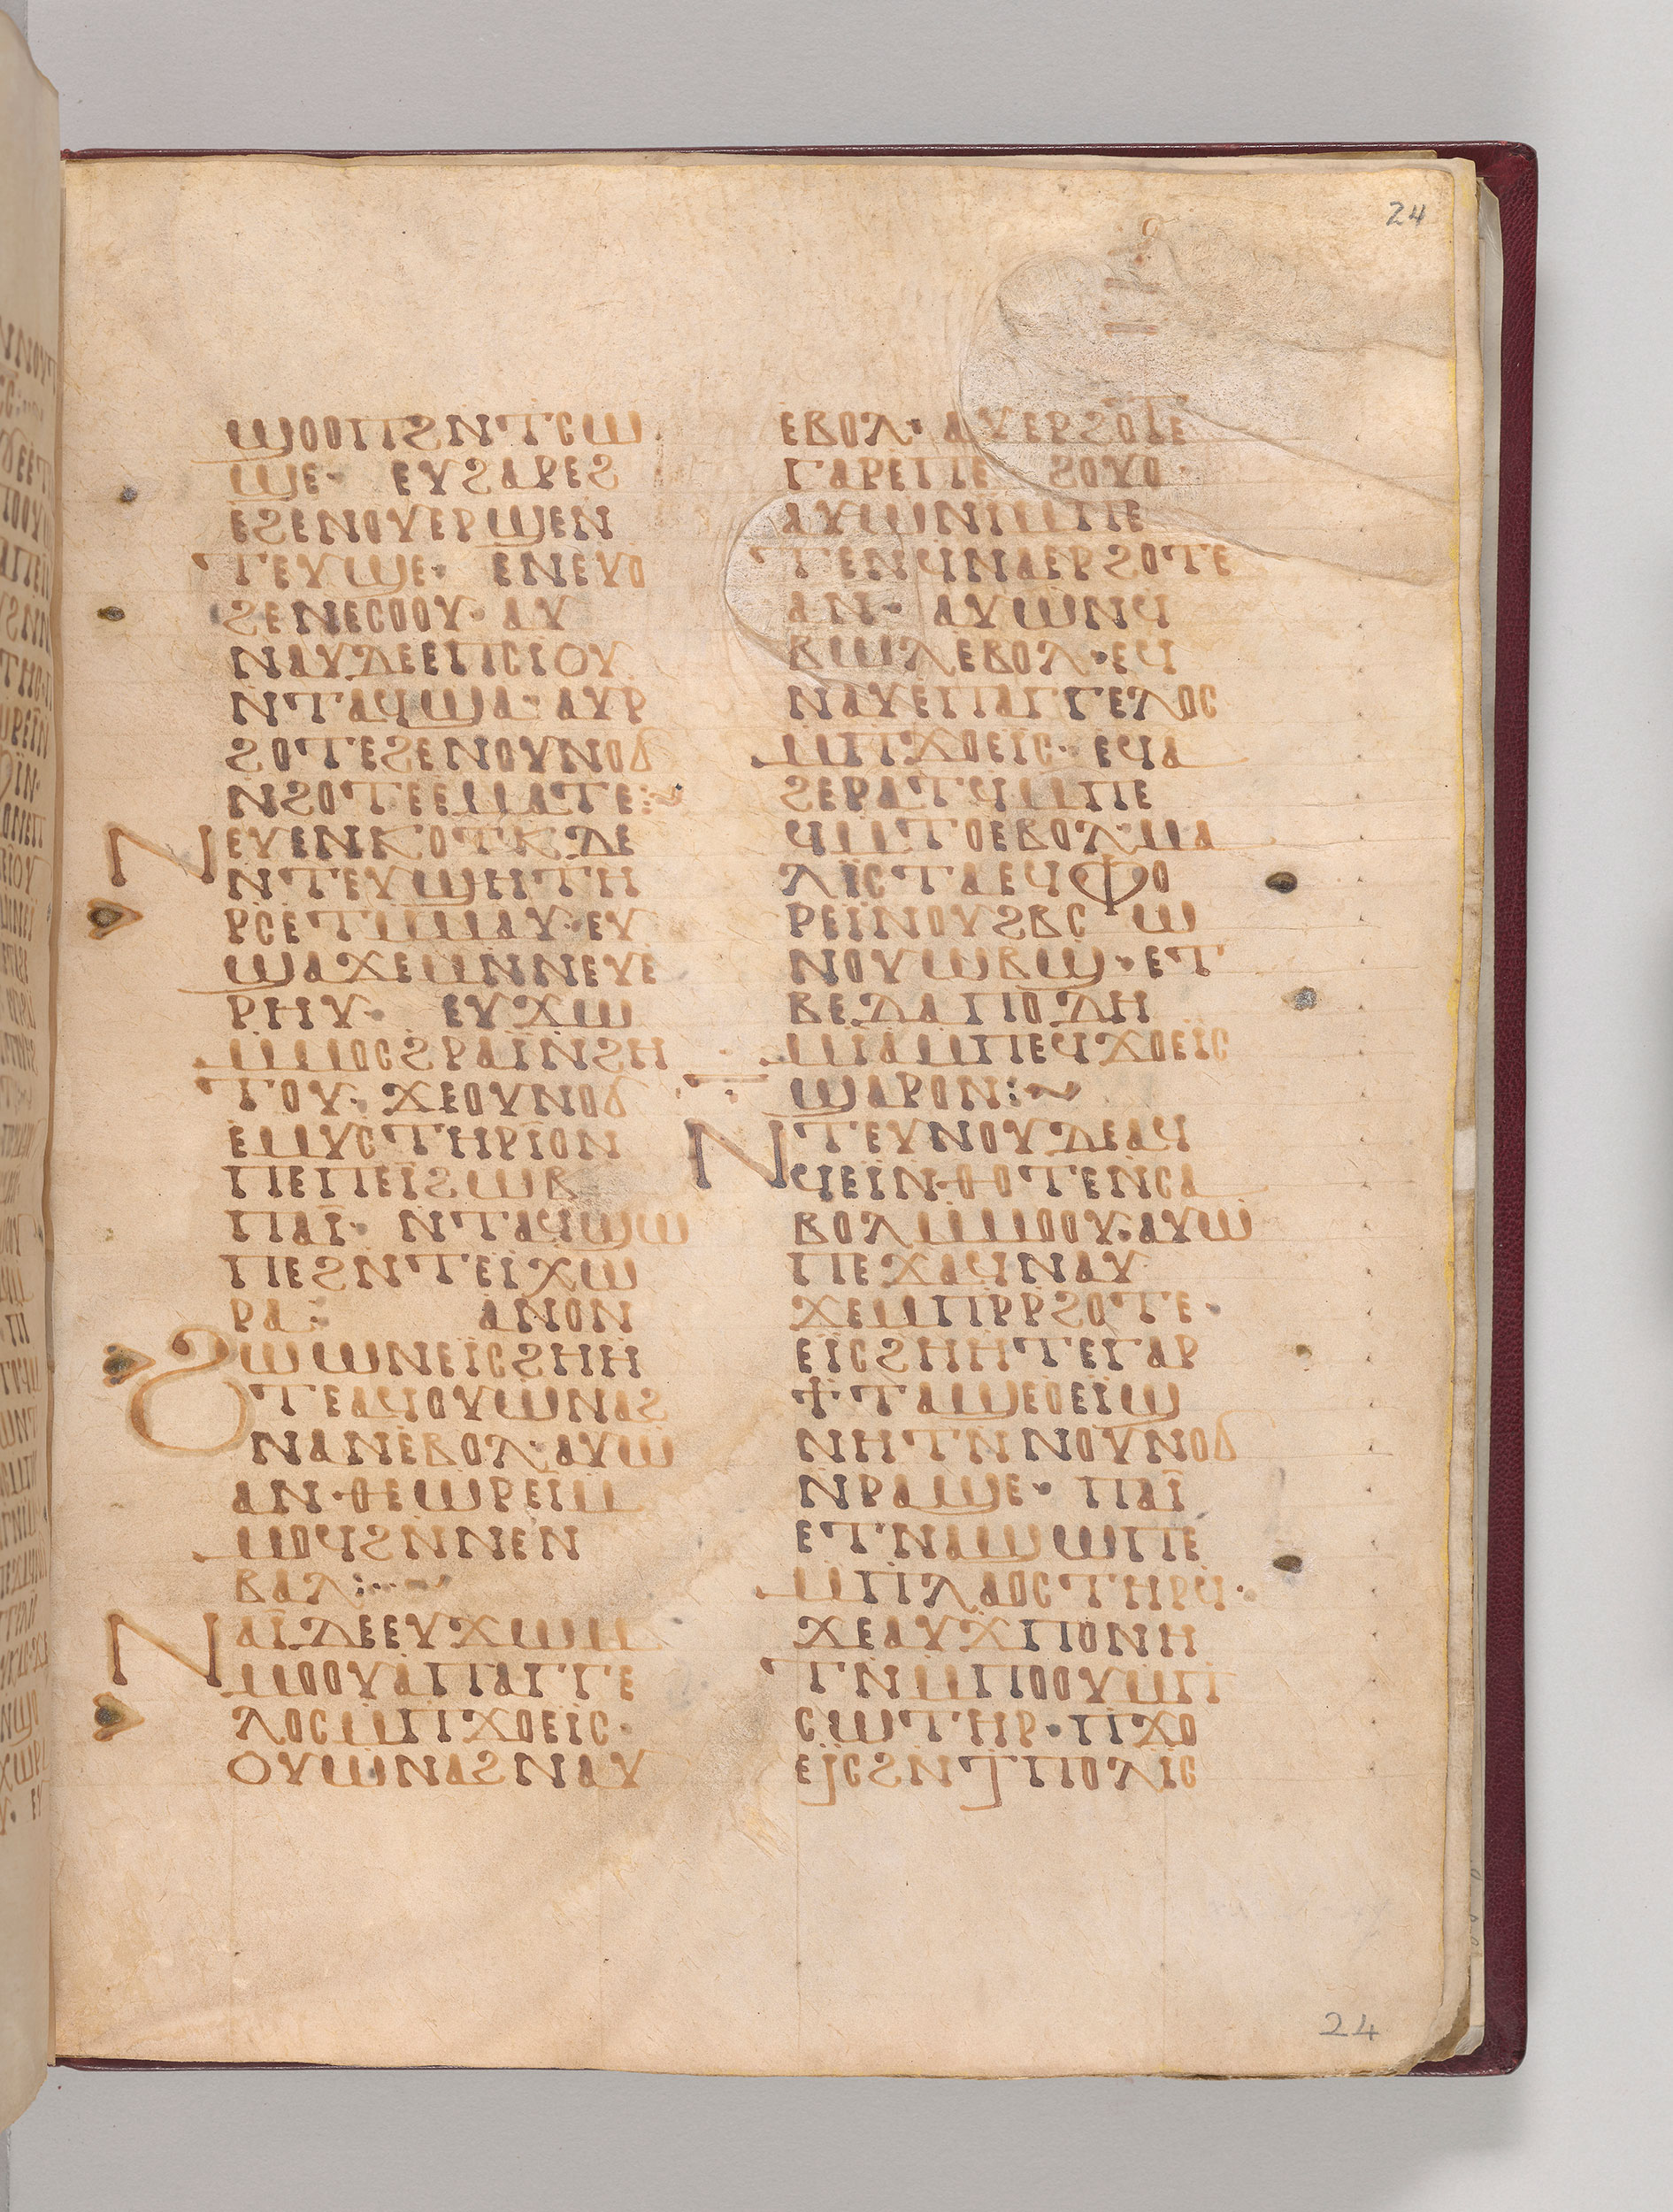 24
ϣⲟⲟⲡϩⲛⲧⲥⲱ
ϣⲉ· ⲉⲩϩⲁⲣⲉϩ
ⲉϩⲉⲛⲟⲩⲉⲣϣⲉⲛ
ⲧⲉⲩϣⲉ· ⲉⲛⲉⲩⲟ
ϩⲉⲛⲉⲥⲟⲟⲩ· ⲁⲩ
ⲛⲁⲩⲇⲉⲉⲡⲥⲓⲟⲩ
ⲛⲧⲁϥϣⲁ· ⲁⲩⲣ
ϩⲟⲧⲉϩⲉⲛⲟⲩⲛⲟϭ
ⲛϩⲟⲧⲉⲉⲙⲁⲧⲉ:~
ⲛⲉⲩⲉⲛⲕⲟⲧⲕⲇⲉ
ⲛⲧⲉⲩϣⲏⲧⲏ
ⲣⲥⲉⲧⲙⲙⲁⲩ·ⲉⲩ
ϣⲁϫⲉⲙⲛⲛⲉⲩⲉ
ⲣⲏⲩ· ⲉⲩϫⲱ
ⲙⲙⲟⲥϩⲣⲁⲓ̈ⲛϩⲏ
ⲧⲟⲩ· ϫⲉⲟⲩⲛⲟϭ
ⲉⲙⲩⲥⲧⲏⲣⲓⲟⲛ
ⲡⲉⲡⲉⲓ̈ϩⲱⲃ
ⲡⲁⲓ̈· ⲛⲧⲁϥϣⲱ
ⲡⲉϩⲛⲧⲉⲓ̈ⲭⲱ
ⲣⲁ: ⲁⲛⲟⲛ
ϩⲱⲱⲛⲉⲓ̈ⲥϩⲏⲏ
ⲧⲉⲁϥⲟⲩⲱⲛⲁϩ
ⲛⲁⲛⲉⲃⲟⲗ·ⲁⲩⲱ
ⲁⲛ·ⲑⲉⲱⲣⲉⲓⲙ
ⲙⲟϥϩⲛⲛⲉⲛ
ⲃⲁⲗ:~
ⲛⲁⲓ̈ⲇⲉⲉⲩϫⲱⲙ
ⲙⲟⲟⲩⲁⲡⲁⲅⲅⲉ
ⲗⲟⲥⲙⲡϫⲟⲉⲓ̈ⲥ·
ⲟⲩⲱⲛⲁϩⲛⲁⲩ
ⲉⲃⲟⲗ· ⲁⲩⲉⲣϩⲟⲧⲉ
ⲅⲁⲣⲉⲡⲉ ϩⲟⲩⲟ·
ⲁⲩⲱⲛⲓⲙⲡⲉ
ⲧⲉⲛϥⲛⲁⲉⲣϩⲟⲧⲉ
ⲁⲛ· ⲁⲩⲱⲛϥ
ⲃⲱⲗⲉⲃⲟⲗ·ⲉϥ
ⲛⲁⲩⲉⲡⲁⲅⲅⲉⲗⲟⲥ
ⲙⲡϫⲟⲉⲓⲥ· ⲉϥⲁ
ϩⲉⲣⲁⲧϥⲙⲡⲉ
ϥⲙⲧⲟⲉⲃⲟⲗ·ⲙⲁ
ⲗⲓ̈ⲥⲧⲁⲉϥⲫⲟ
ⲣⲉⲓ̈ⲛⲟⲩϩⲃⲥ ⲱ
ⲛⲟⲩⲱⲃϣ·ⲉⲧ
ⲃⲉⲇⲁⲡⲟⲇⲏ
ⲙⲓⲁⲙⲡⲉϥϫⲟⲉⲓ̈ⲥ
ϣⲁⲣⲟⲛ:~
ⲛⲧⲉⲩⲛⲟⲩⲇⲉⲁϥ
ϥⲉⲓ̈ⲛ·ⲑⲟⲧⲉⲛⲥⲁ
ⲃⲟⲗⲙⲙⲟⲟⲩ·ⲁⲩⲱ
ⲡⲉϫⲁϥⲛⲁⲩ
ϫⲉⲙⲡⲣⲣϩⲟⲧⲉ·
ⲉⲓ̈ⲥϩⲏⲏⲧⲉⲅⲁⲣ
ϯⲧⲁϣⲉⲟⲉⲓ̈ϣ
ⲛⲏⲧⲛⲛⲟⲩⲛⲟϭ
ⲛⲣⲁϣⲉ· ⲡⲁⲓ̈
ⲉⲧⲛⲁϣⲱⲡⲉ
ⲙⲡⲗⲁⲟⲥⲧⲏⲣϥ·
ϫⲉⲁⲩϫⲡⲟⲛⲏ
ⲧⲛⲙⲡⲟⲟⲩⲙⲡ
ⲥⲱⲧⲏⲣ·ⲡϫⲟ
ⲉⲓ̈ⲥϩⲛⲧⲡⲟⲗⲓⲥ
24